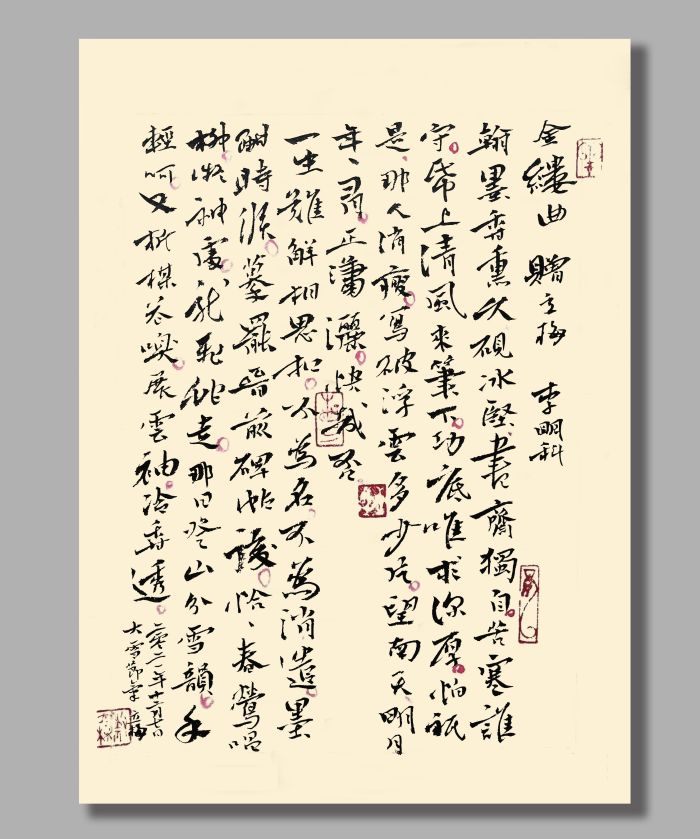 金縷曲 贈立梅 李明科
翰墨香熏久硯冰堅書齋獨自苦寒誰
守帋上清風來筆下功底唯求深厚怕祇
是那人消瘦寫破浮雲多少片望南天明月
年、尋正瀟灑快哉否
一生難解相思扣不為名不為消遣墨
酣時候摹罷晉前碑帖後恰、春鶯唱
柳凝神處龍飛蛇走那日登山分雪韻手
輕呵又折梅花嗅展雲袖冷香透
二零二一年十二月七日
大雪節氣